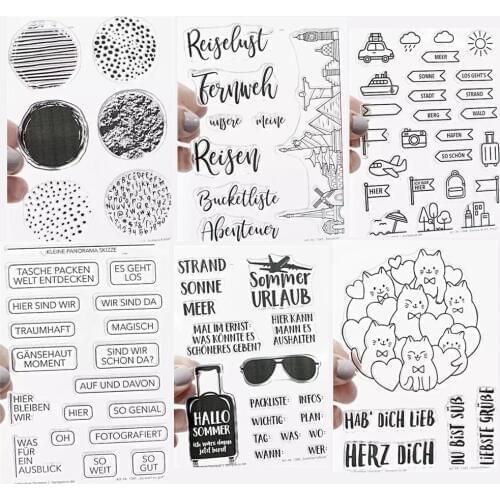 Reiselust
Fernweh
unsere meine
Reisen
Bucketliste
Abenteuer
MEER
SONNE
LOS GEHT'S
STADT
STRAND
BERG
WALD
HAFEN
SO SCHÖN
HIER
HIER
KLEINE PANORAMA SKIZZE
TASCHE PACKEN
WELT ENTDECKEN
ES GEHT
LOS
HIER SIND WIR
WIR SIND DA
TRAUMHAFT
MAGISCH
GÄNSEHAUT
MOMENT
SIND WIR
SCHON DA?
AUF UND DAVON
HIER
BLEIBEN
WIR
HIER
SO GENIAL
WAS
FÜR
EIN
AUSBLICK
OH
FOTOGRAFIERT
SO
WEIT
SO
GUT
STRAND
SONNE
MEER
Sommer
URLAUB
MAL IM ERNST:
WAS KÖNNTE ES
SCHÖNERES GEBEN?
HIER KANN
MANN ES
AUSHALTEN
HALLO
SOMMER
Ich wäre dann
jetzt bereit
PACKLISTE: INFOS:
WICHTIG: PLAN:
TAG: WAS: WO:
WANN: WER:
HAB' DiCH LiEB
HERZ DiCH
DU BiST SÜß
LiEBSTE GRÜßE